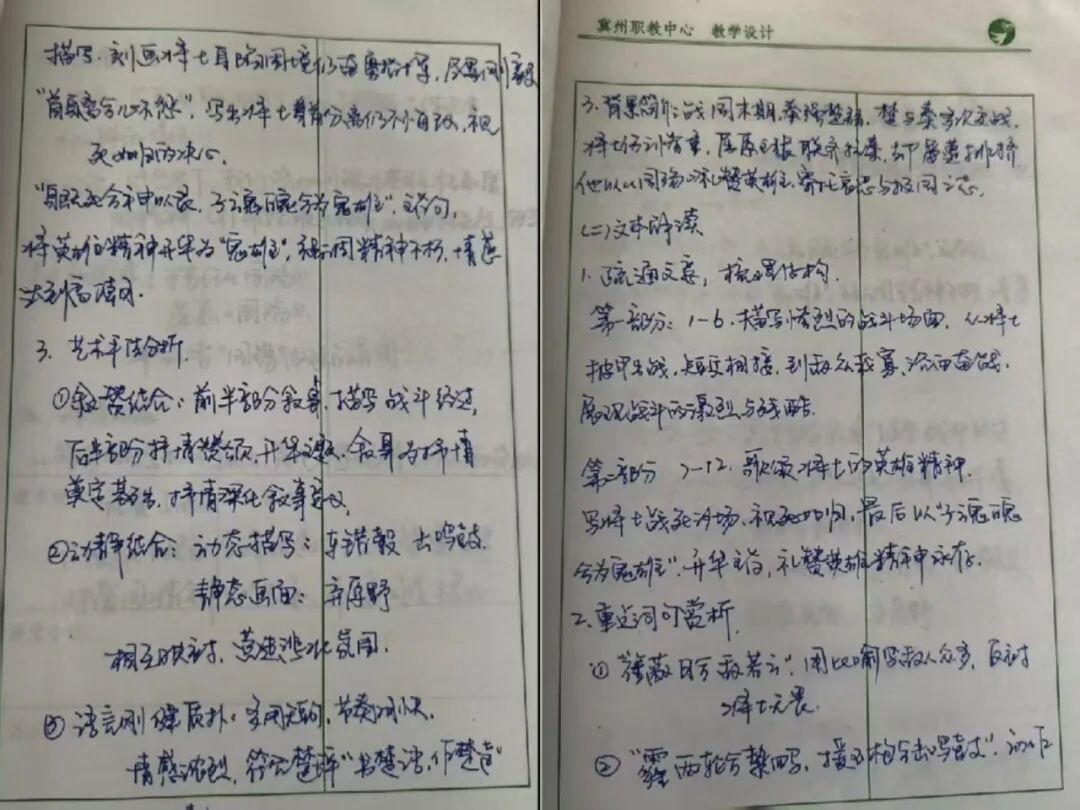 描写。刻画将士身陷困境仍奋勇抗争,展 刚毅
“首身离兮心不惩”,写出将士身首分离仍不悔改,视
死如归的决心。
“身既死兮神以灵,子魂魄兮为鬼雄”,主旨句,
将英雄的精神升华为“鬼雄”,精神不朽,情感
达到高潮。
3. 艺术手法分析。
①叙赞结合:前半部分叙事,描写战斗经过,
后半部分抒情赞颂,升华主题,叙事为抒情
奠定基础,抒情深化叙事意义
②动静结合:动态描写:车错毂 击鸣鼓
静态画面:弃原野
相互映衬,营造悲壮氛围。
③ 语言刚健质朴:多用短句,节奏明快,
情感浓烈,符合楚辞“书楚语,作楚声”
冀州职教中心 教学设计
3. 背景简介:战国末期,秦强楚弱,楚与秦多次交战,
将士伤亡惨重,屈原主张联齐抗秦,却屡遭排挤
他以《国殇》礼赞英雄,寄托哀思与报国之志。
(二)文本解读
1. 疏通文意,梳理结构。
第一部分:1-6,描写惨烈的战斗场面,从将士
披甲出战,短兵相接,到敌众我寡,浴血奋战,
展现战斗的激烈与残酷。
第二部分 7-12,歌颂将士的英雄精神
写将士战死沙场、视死如归,最后以“子魂魄
兮为鬼雄”,升华主旨,礼赞英雄精神永存。
2. 重点词句赏析。
① “旌蔽日兮敌若云”,用比喻写敌人众多,反衬
将士无畏
② “霾两轮兮絷四马,援玉枹兮击鸣鼓”,动作